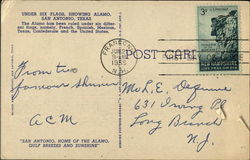 UNDER SIX FLAGS, SHOWING ALAMO,
SAN ANTONIO, TEXAS
The Alamo has been ruled under six differ-
ent flags, namely, French, Spanish, Mexican,
Texas, Confederate and the United States.
POST CARD
1955
N.J.
3¢
NEW HAMPSHIRE
From two
famous
A C M
M. L. E. Degnan
631 Irving Pl
Long Branch
N. J.
"SAN ANTONIO, HOME OF THE ALAMO,
GULF BREEZES AND SUNSHINE"